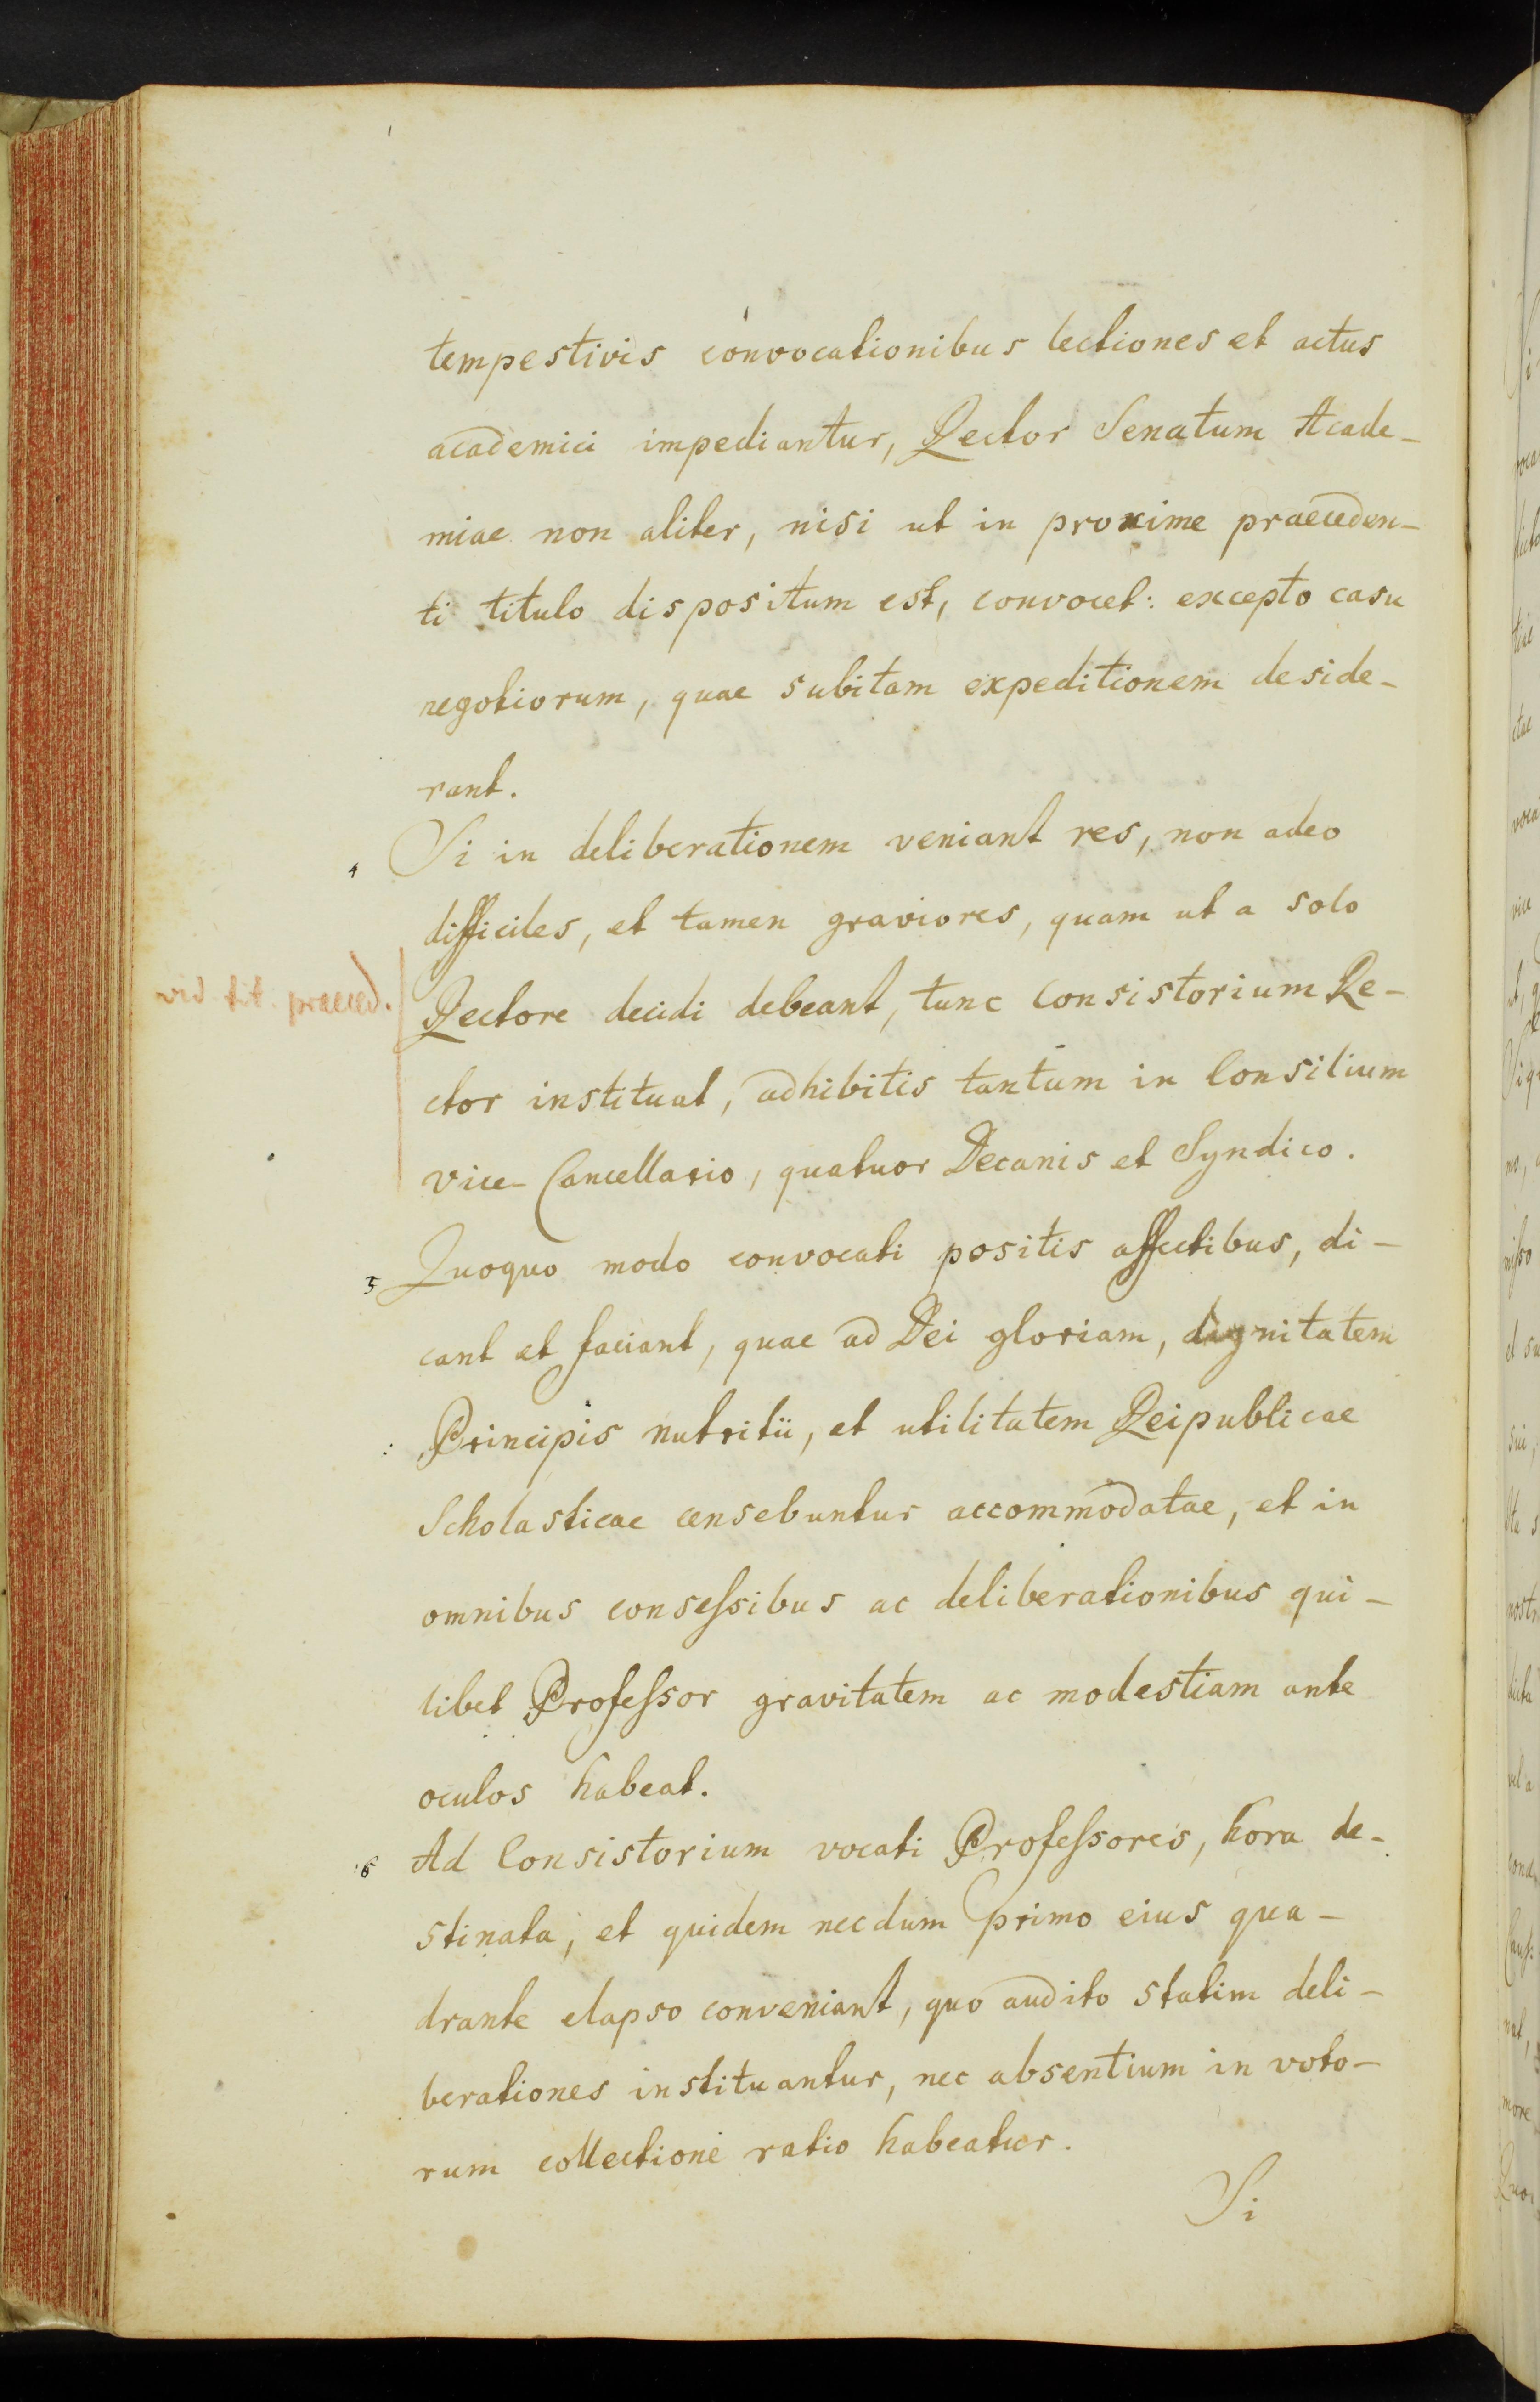 tempestivis convocationibus lectiones et actus
academici impediantur, Rector Senatum Acade-
miae non aliter, nisi ut in proxime praeceden-
ti titulo dispositum est, convocet: excepto casu
negotiorum, quae subitam expeditionem deside-
rant.
4 Si in deliberationem veniant res, non adeo
difficiles, et tamen graviores, quam ut a solo
vid. tit. praeced.
Rectore decidi debeant, tunc Consistorium Re-
ctor instituat, adhibitis tantum in Consilium
Vice-Cancellario, quatuor Decanis et Syndico.
5 Quoquo modo convocati positis affectibus, di-
cant et faciant, quae ad Dei gloriam, dignitatem
Principis nutritii, et utilitatem Reipublicae
Scholasticae censebuntur accommodatae, et in
omnibus conseſsibus ac deliberationibus qui-
libet Profeſsor gravitatem ac modestiam ante
oculos habeat.
6 Ad Consistorium vocati Profeſsores, hora de-
stinata, et quidem necdum primo eius qua-
drante elapso conveniant, quo audito statim deli-
berationes instituantur, nec absentium in voto-
rum collectione ratio habeatur.
Si